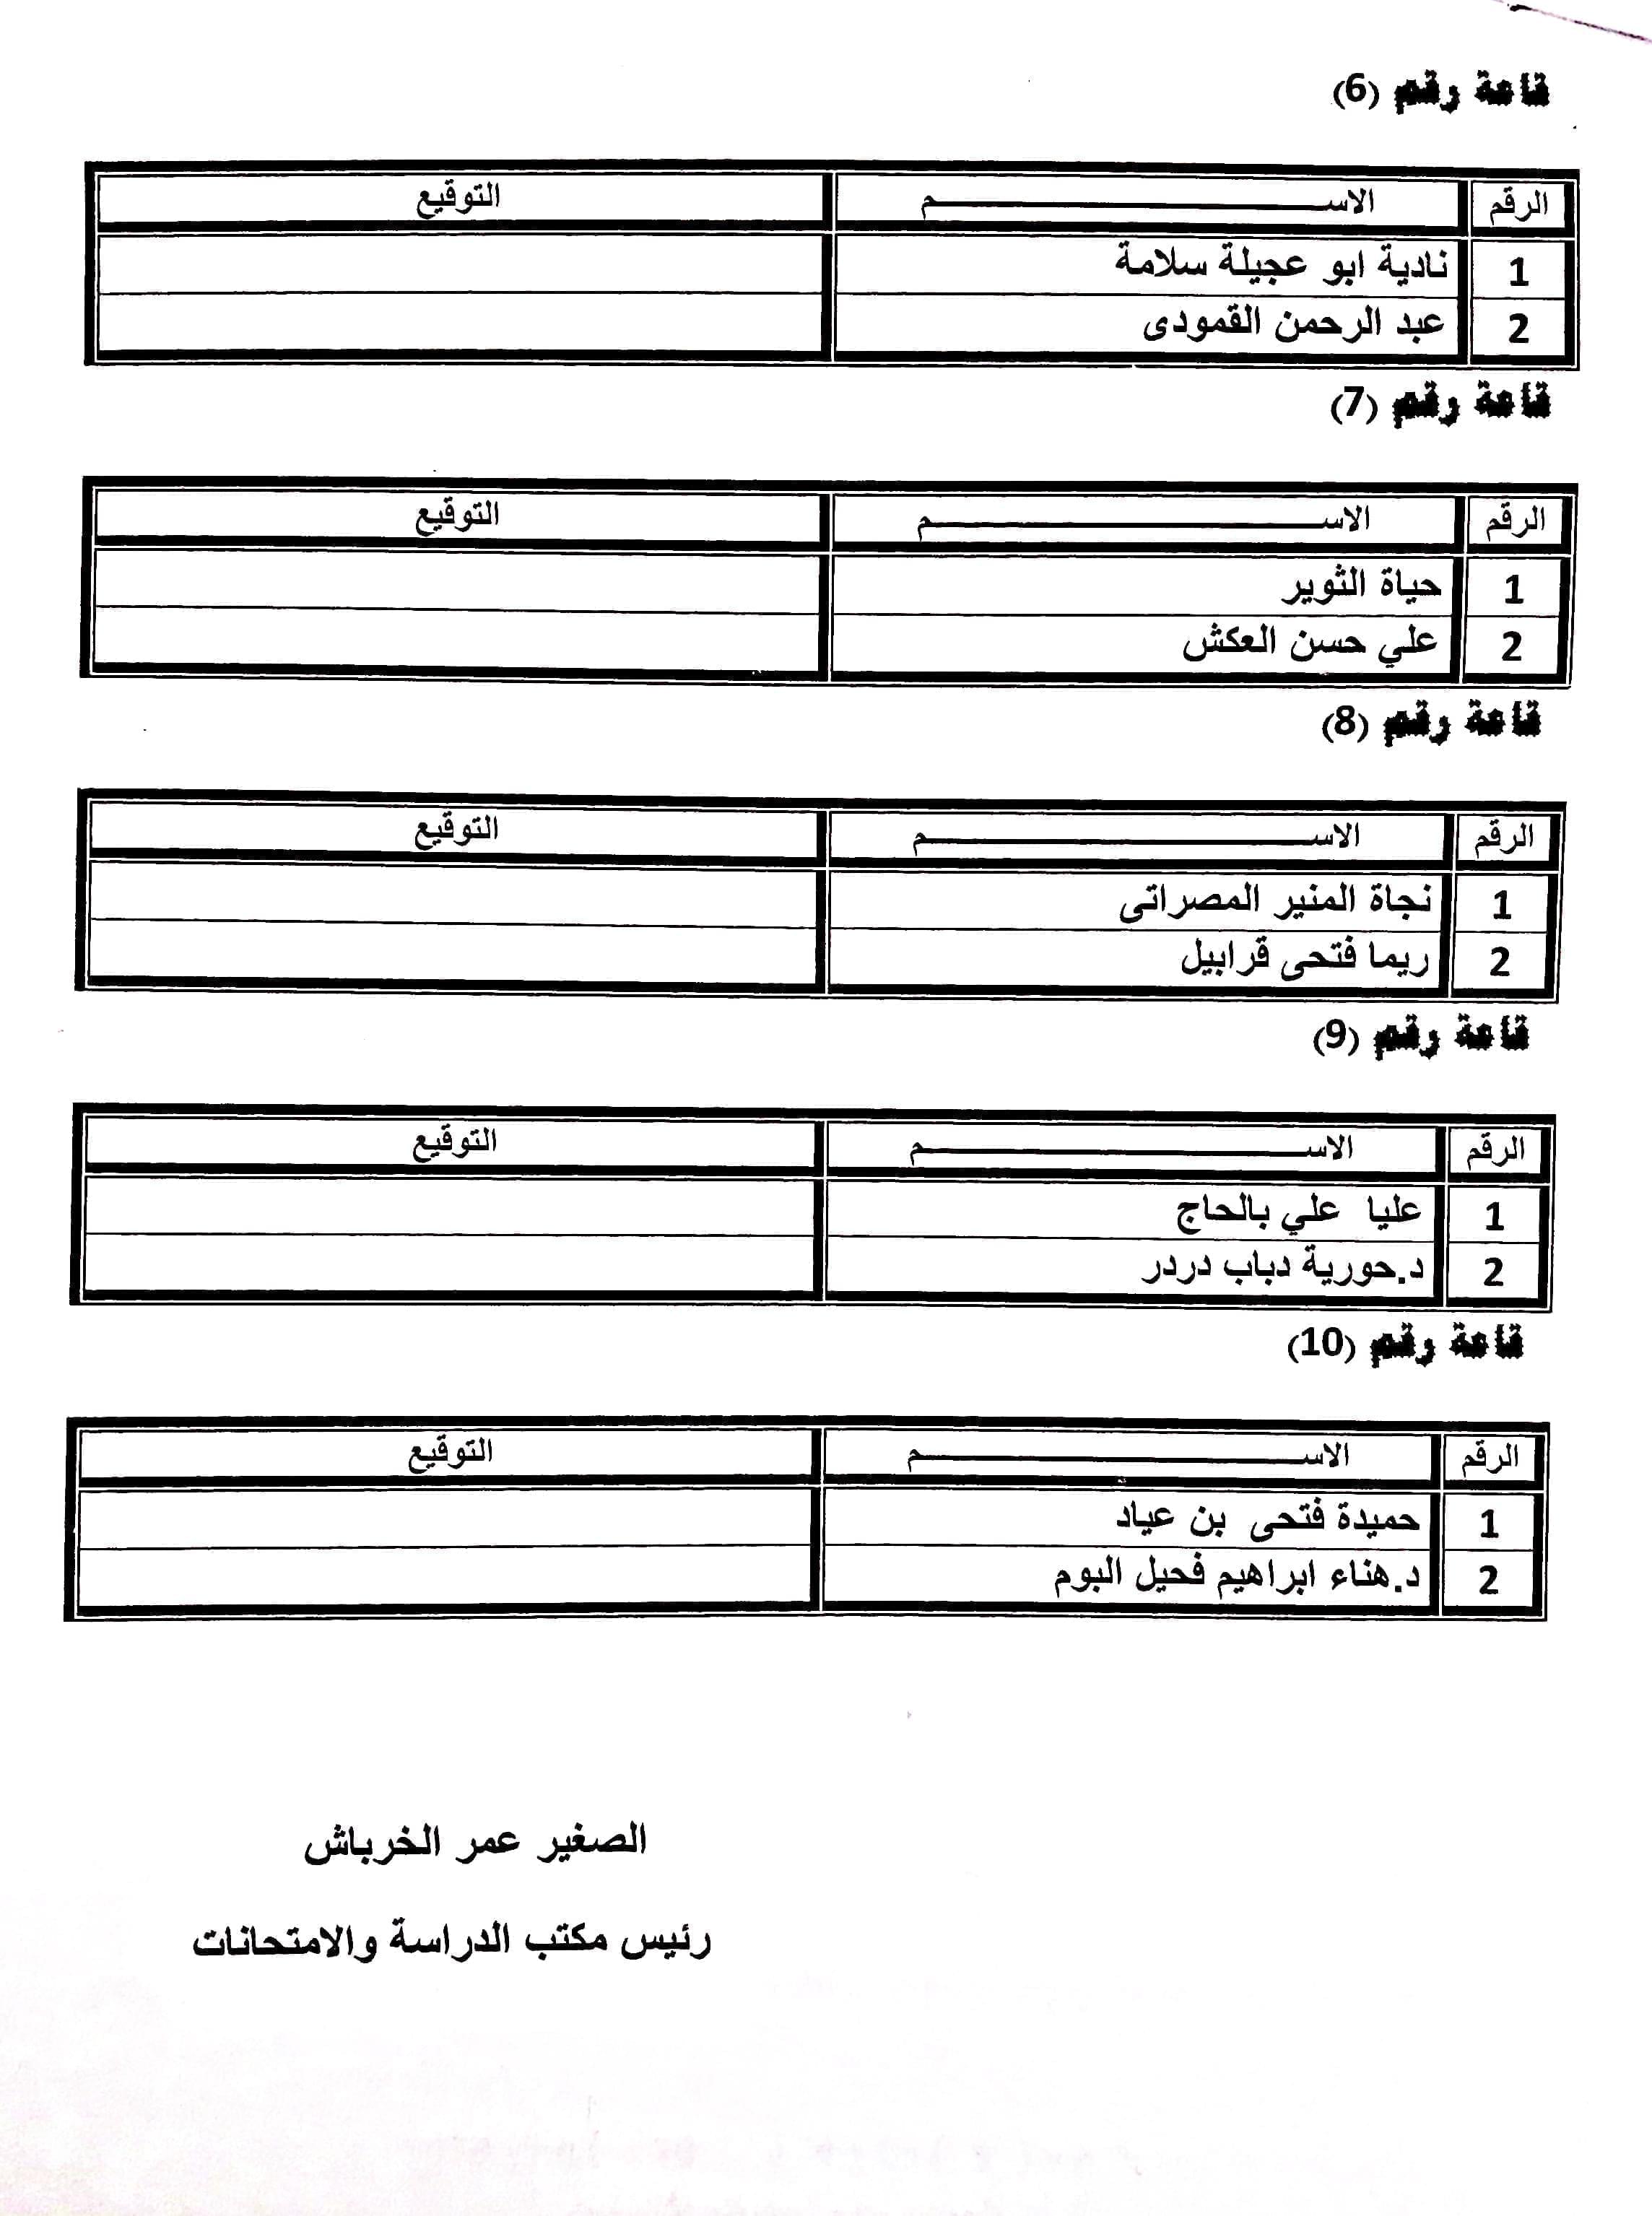 قاعة رقم (6)
الرقم الاســـــــــــــــــم التوقيع
1 نادية ابو عجيلة سلامة
2 عبد الرحمن القمودى
قاعة رقم (7)
الرقم الاســـــــــــــــــم التوقيع
1 حياة الثوير
2 علي حسن العكش
قاعة رقم (8)
الرقم الاســـــــــــــــــم التوقيع
1 نجاة المنير المصراتى
2 ريما فتحى قرابيل
قاعة رقم (9)
الرقم الاســـــــــــــــــم التوقيع
1 عليا علي بالحاج
2 د.حورية دباب دردر
قاعة رقم (10)
الرقم الاســـــــــــــــــم التوقيع
1 حميدة فتحى بن عياد
2 د.هناء ابراهيم فحيل البوم
الصغير عمر الخرباش
رئيس مكتب الدراسة والامتحانات